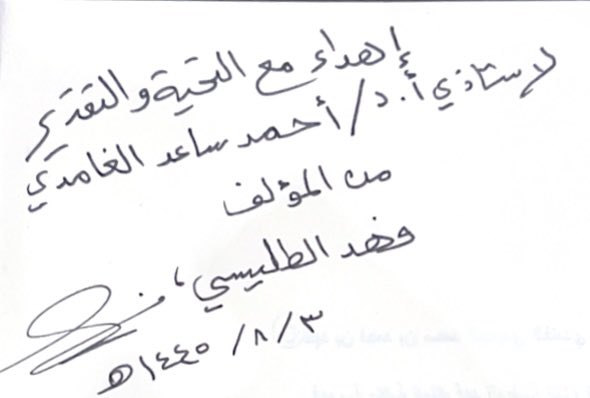 إهداء مع التحية والتقدير
لأستاذي أ.د/أحمد ساعد الغامدي
من المؤلف
فهد الطليسي،
٣/٨/١٤٤٠هـ